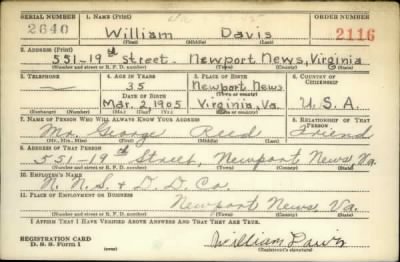 SERIAL NUMBER 1. NAME (Print) ORDER NUMBER
2640 William Davis 2116
(First) (Middle) (Last)
2. ADDRESS (Print)
551-19th Street. Newport News, Virginia
(Number and street or R. F. D. number) (Town) (County) (State)
3. TELEPHONE 4. AGE IN YEARS 5. PLACE OF BIRTH 6. COUNTRY OF CITIZENSHIP
— 35 Newport News
DATE OF BIRTH (Town or county)
Mar. 2, 1905 Virginia, Va. U.S.A.
(Exchange) (Number) (Mo.) (Day) (Yr.) (State or country)
7. NAME OF PERSON WHO WILL ALWAYS KNOW YOUR ADDRESS 8. RELATIONSHIP OF THAT PERSON
Mr. George Reed Friend
(Mr., Mrs., Miss) (First) (Middle) (Last)
9. ADDRESS OF THAT PERSON
551-19th Street, Newport News Va.
(Number and street or R. F. D. number) (Town) (County) (State)
10. EMPLOYER'S NAME
N. N. S. & D. D. Co.
11. PLACE OF EMPLOYMENT OR BUSINESS
Newport News, Va.
(Number and street or R. F. D. number) (Town) (County) (State)
I AFFIRM THAT I HAVE VERIFIED ABOVE ANSWERS AND THAT THEY ARE TRUE.
REGISTRATION CARD
D. S. S. Form 1 William Davis
(Registrant's signature)